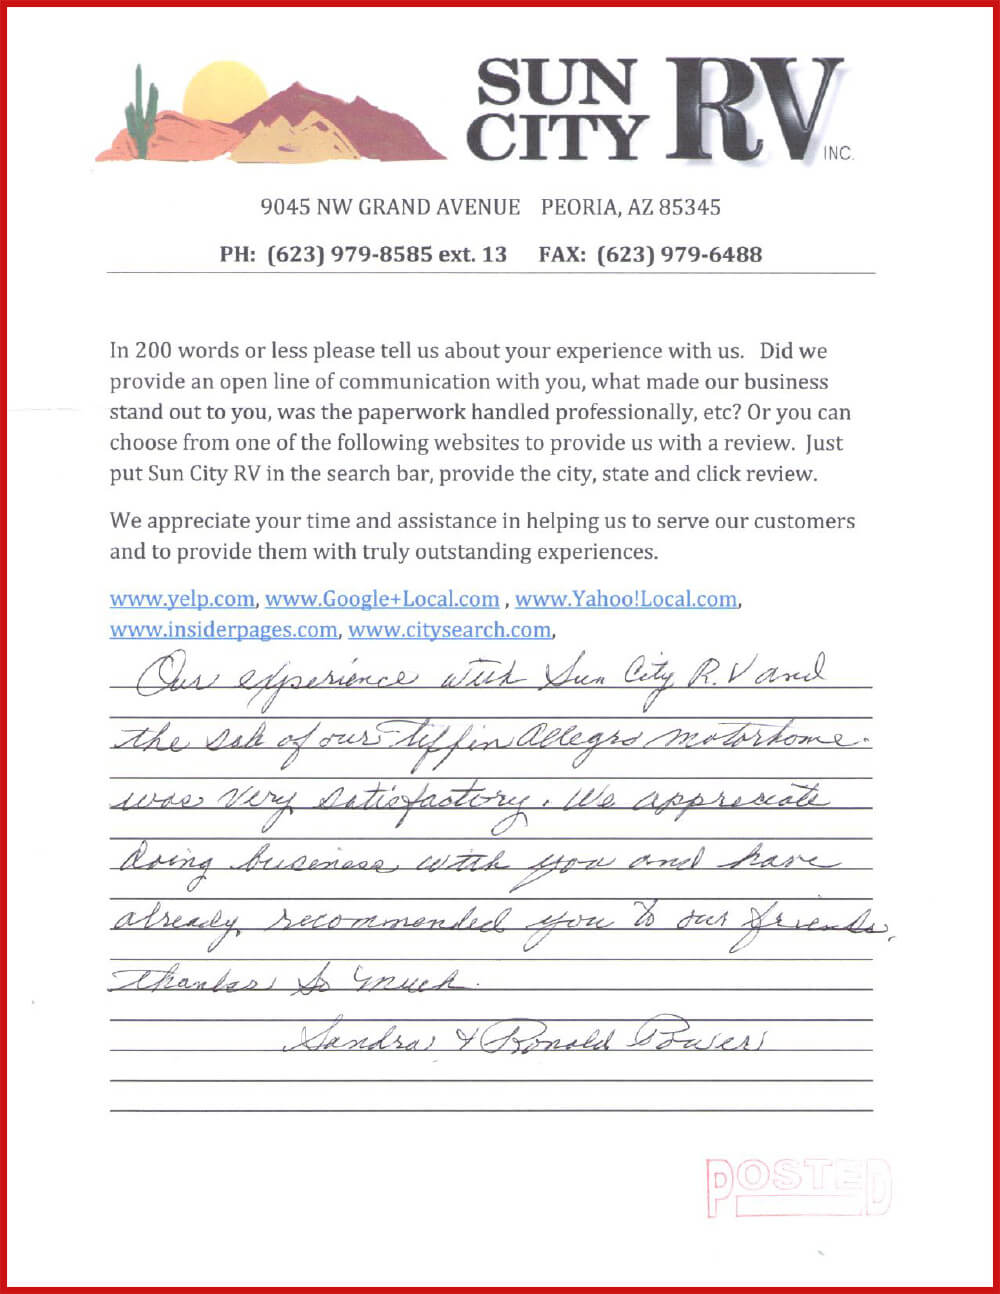 SUN CITY RV INC.
9045 NW GRAND AVENUE PEORIA, AZ 85345
PH: (623) 979-8585 ext. 13 FAX: (623) 979-6488
In 200 words or less please tell us about your experience with us. Did we
provide an open line of communication with you, what made our business
stand out to you, was the paperwork handled professionally, etc? Or you can
choose from one of the following websites to provide us with a review. Just
put Sun City RV in the search bar, provide the city, state and click review.
We appreciate your time and assistance in helping us to serve our customers
and to provide them with truly outstanding experiences.
www.yelp.com, www.Google+Local.com , www.Yahoo!Local.com,
www.insiderpages.com, www.citysearch.com,
Our experience with Sun City R.V and
the sale of our Tiffin Allegro motorhome.
was very satisfactory. We appreciate
doing business with you and have
already recommended you to our friends.
Thanks so much.
Sandra & Ronald Bowers
POSTED